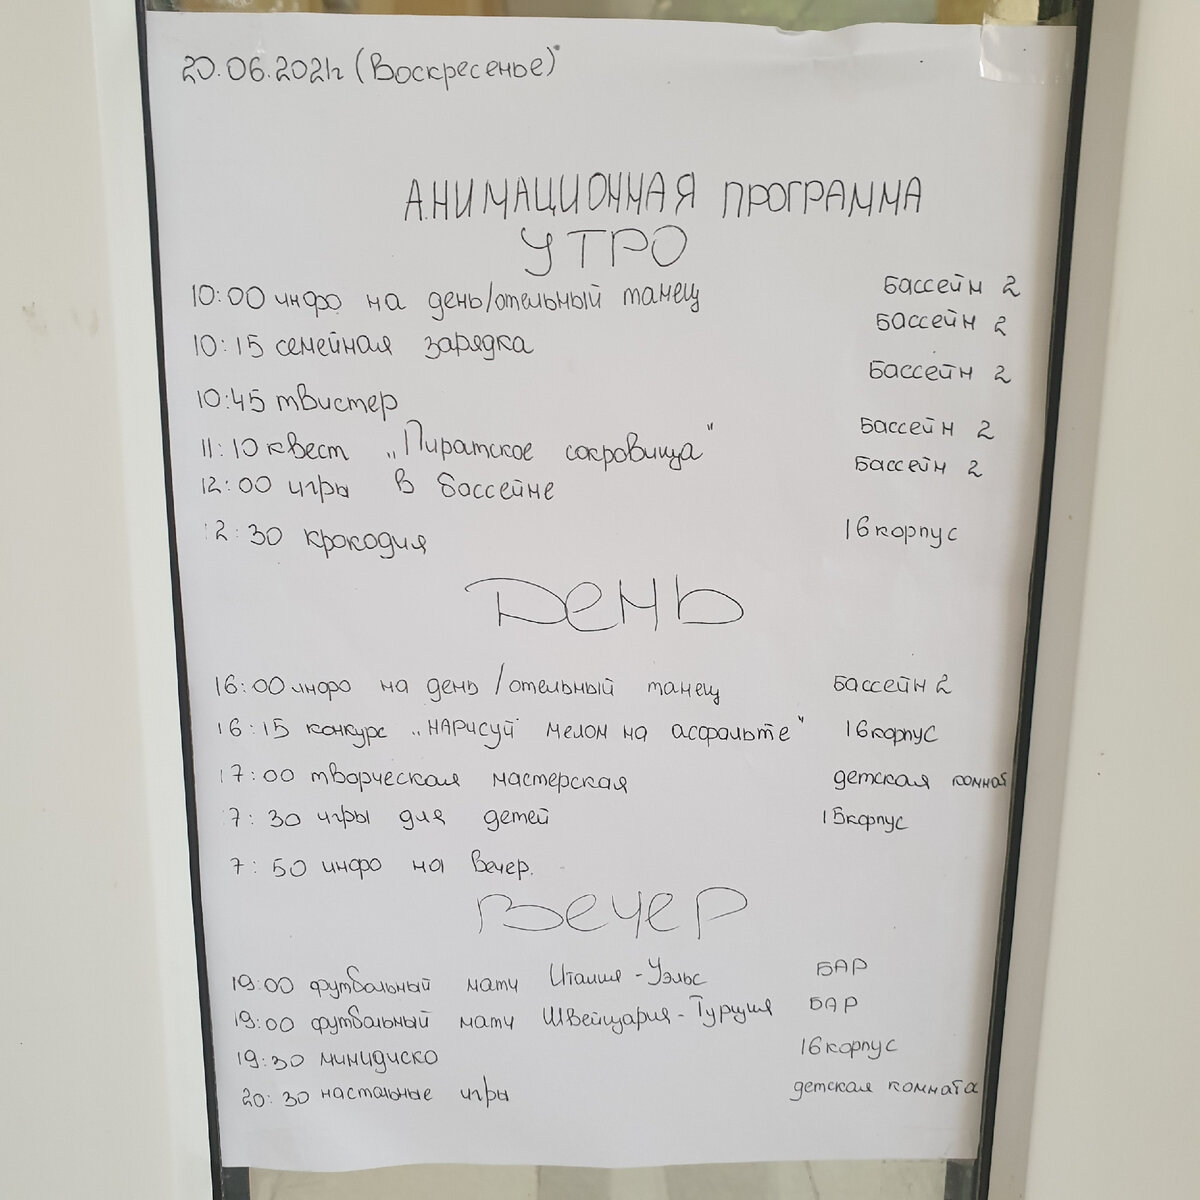 20.06.2021г (Воскресенье)
АНИМАЦИОННАЯ ПРОГРАММА
УТРО
10:00 инфо на день/отельный танец Бассейн 2
10:15 семейная зарядка Бассейн 2
10:45 твистер Бассейн 2
11:10 квест „Пиратское сокровища" Бассейн 2
12:00 игры в бассейне Бассейн 2
12:30 крокодил 16 корпус
День
16:00 инфо на день/отельный танец Бассейн 2
16:15 конкурс „НАРИСУЙ мелом на асфальте" 16 корпус
17:00 творческая мастерская детская комнат
7:30 игры для детей 15 корпус
7:50 инфо на вечер.
Вечер
19:00 футбольный матч Италия-Уэльс БАР
19:00 футбольный матч Швейцария-Турция БАР
19:30 минидиско 16 корпус
20:30 настальные игры детская комната